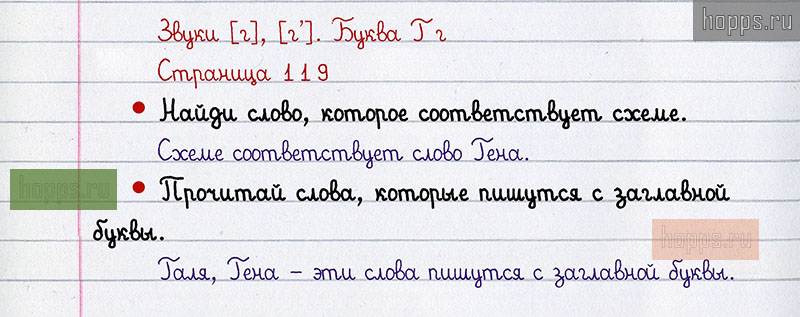 hopps.ru
Звуки [г], [г’]. Буква Г г
Страница 119
• Найди слово, которое соответствует схеме.
Схеме соответствует слово Гена.
hopps.ru
• Прочитай слова, которые пишутся с заглавной
буквы.
hopps.ru
Галя, Гена – эти слова пишутся с заглавной буквы.